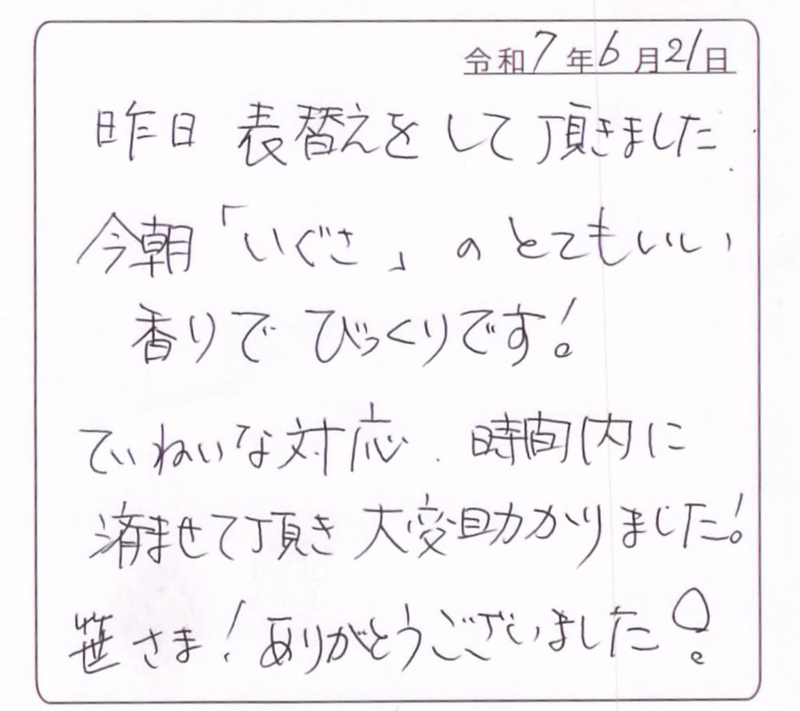 令和7年6月21日
昨日 表替えをして頂きました.
今朝「いぐさ」のとてもいい
香りでびっくりです!
ていねいな対応. 時間内に
済ませて頂き 大変助かりました!
笹さま! ありがとうございました!